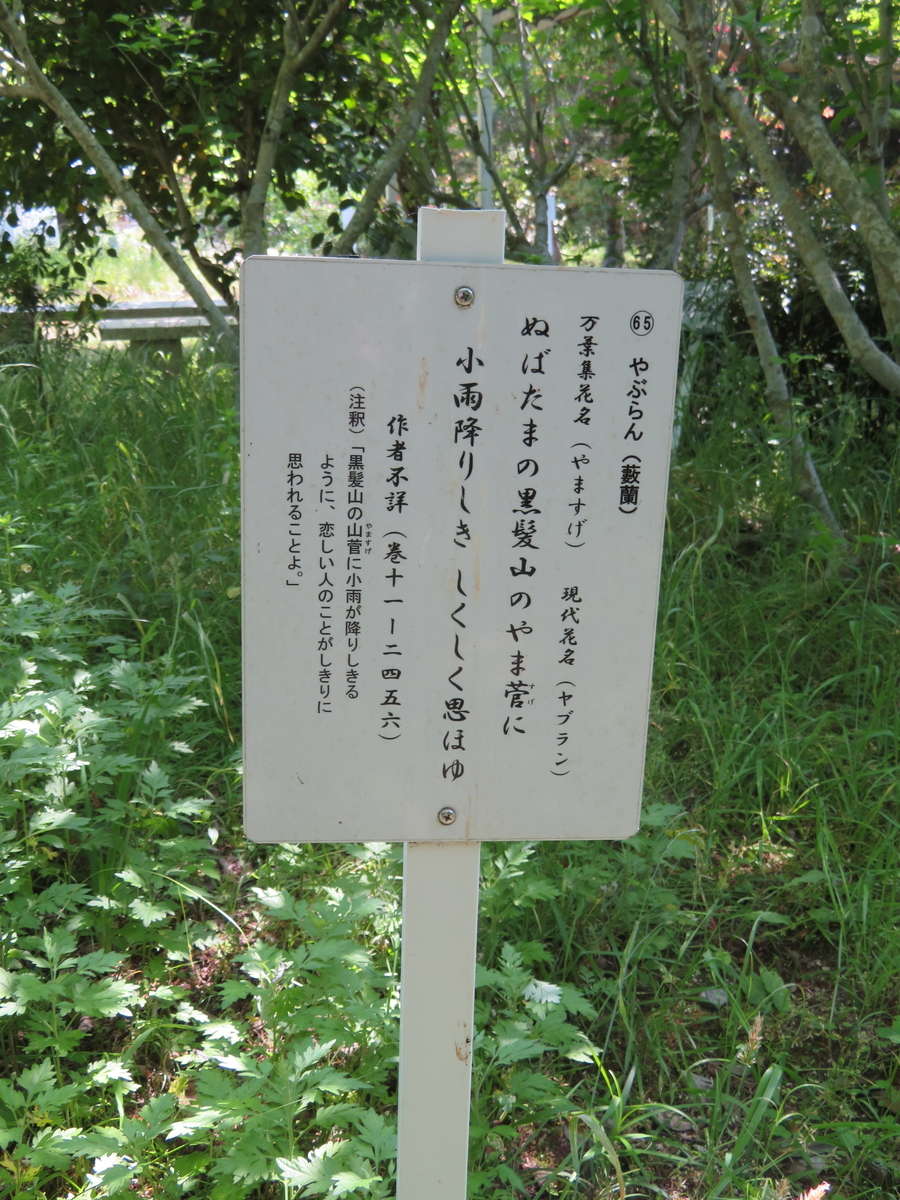 ㊿65 やぶらん（藪蘭）
万葉集花名（やますげ） 現代花名（ヤブラン）
ぬばたまの黒髪山のやま菅に
すげ
小雨降りしき しくしく思ほゆ
作者不詳（巻十一ー二四五六）
（注釈）「黒髪山の山菅に小雨が降りしきる
やますげ
ように、恋しい人のことがしきりに
思われることよ。」